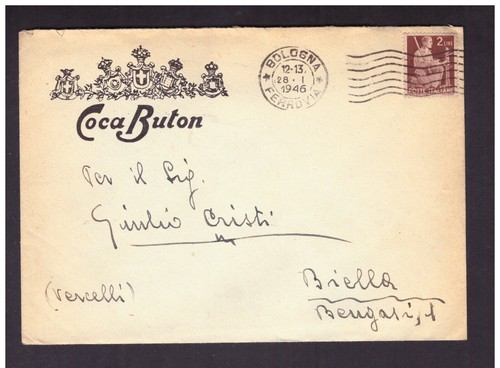 BOLOGNA
12-13.
28 · I
1946
FERROVIA
2 LIRE
POSTE ITALIANE
Coca Buton
Per il Sig.
Giulio Cristi
Biella
(Vercelli)
Bengasi, 1